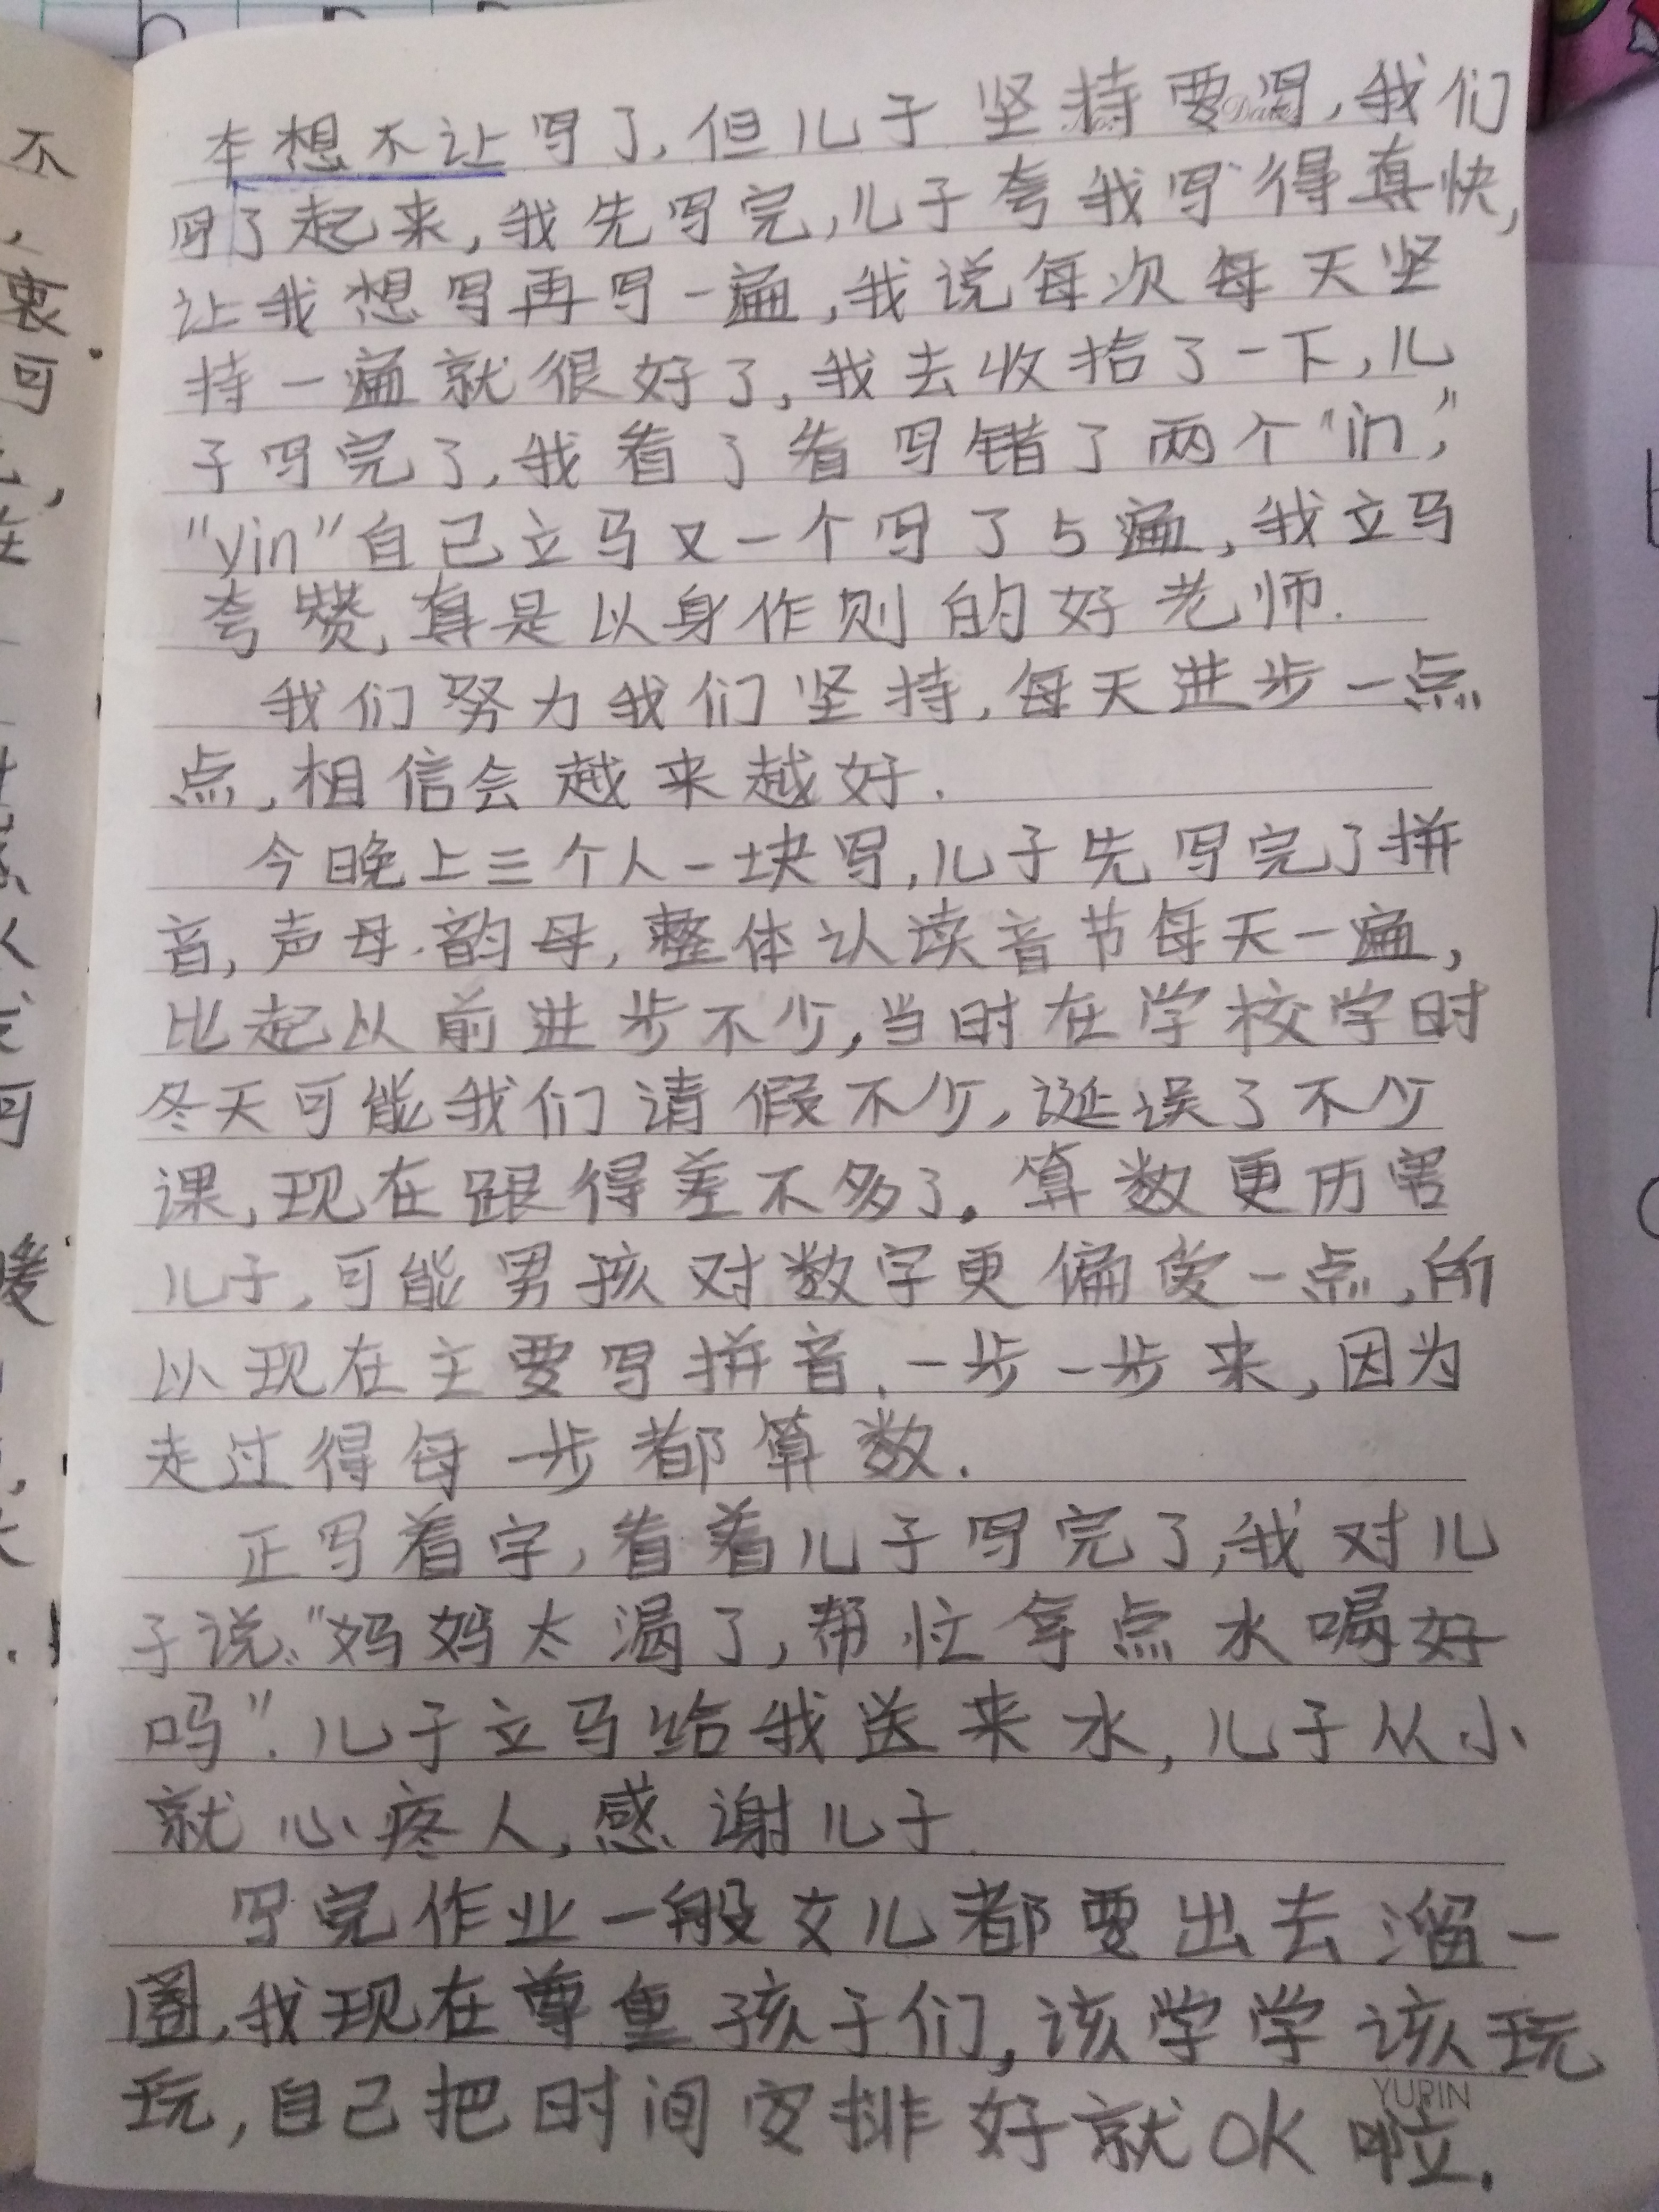 本想不让写了,但儿子坚持要写,我们
写了起来,我先写完,儿子夸我写得真快,
让我想写再写一遍,我说每次每天坚
持一遍就很好了,我去收拾了一下,儿
子写完了,我看了看写错了两个"in",
"yin"自己立马又一个写了5遍,我立马
夸赞,真是以身作则的好老师.
我们努力我们坚持,每天进步一点
点,相信会越来越好.
今晚上三个人一块写,儿子先写完了拼
音,声母.韵母,整体认读音节每天一遍,
比起以前进步不少,当时在学校学时
冬天可能我们请假不少,诞误了不少
课,现在跟得差不多了。算数更历害
儿子,可能男孩对数字更偏爱一点,所
以现在主要写拼音,一步一步来,因为
走过得每一步都算数.
正写着字,看着儿子写完了,我对儿
子说:"妈妈太渴了,帮忙拿点水喝好
吗".儿子立马给我送来水,儿子从小
就心疼人,感谢儿子.
写完作业一般女儿都要出去溜一
圈,我现在尊重孩子们,该学学该玩
玩,自己把时间安排好就OK啦.
YUPIN
Date
不
衷
可